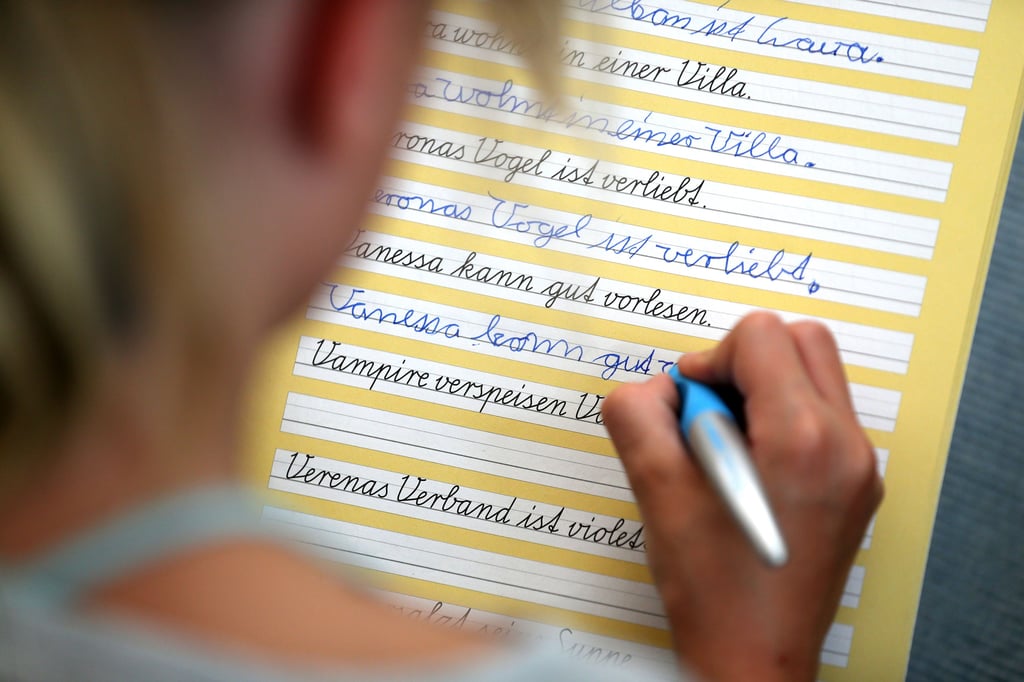 ist
wohnt in einer Villa.
wohnt in einer Villa.
ronas Vogel ist verliebt.
eronas Vogel ist verliebt.
Vanessa kann gut vorlesen.
Vanessa kann gut
Vampire verspeisen
Verenas Verband ist violet